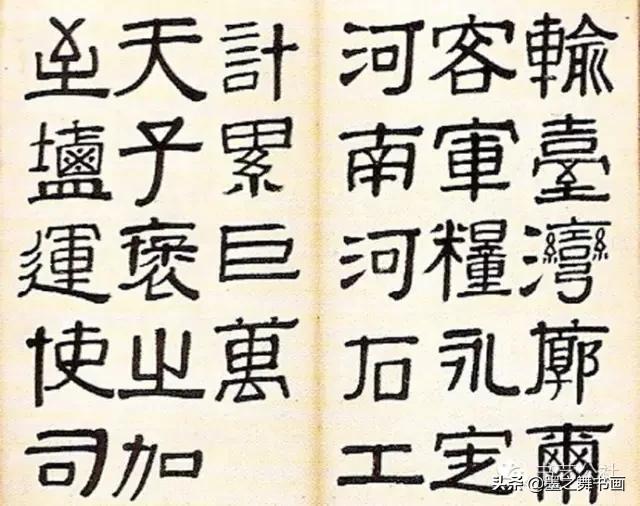 輸臺灣廓爾
客軍糧永定
河南河石工
計累巨萬
天子褒之加
至鹽運使司
头条 @墨之舞书画